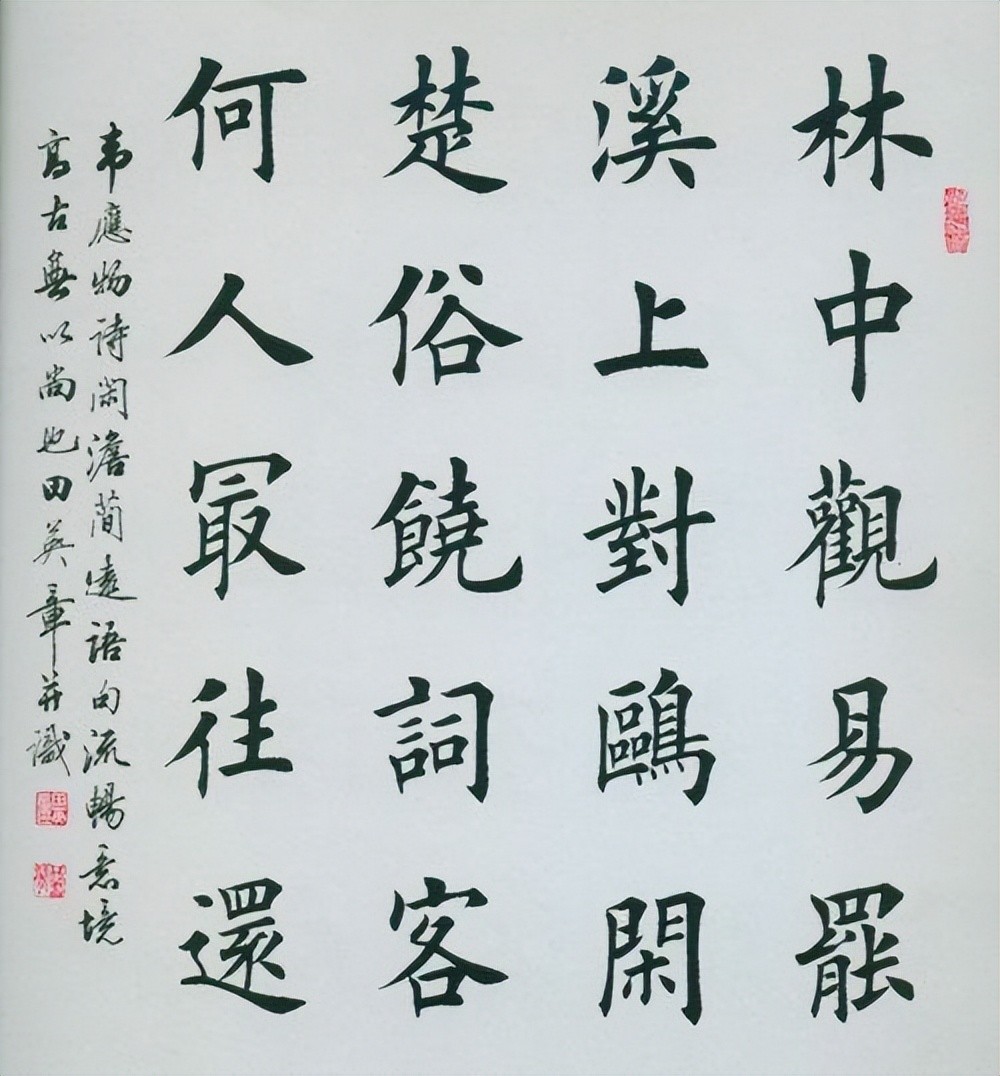 林中觀易罷
溪上對鷗閑
楚俗饒詞客
何人最往還
韦應物詩闲澹蕳遠語句流暢意境
高古無以尚也田英章并識